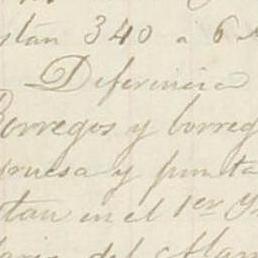 stan 340 a 6
Diferencia
Borregos y borreg
gruesa y punta
stan en el 1er y
del